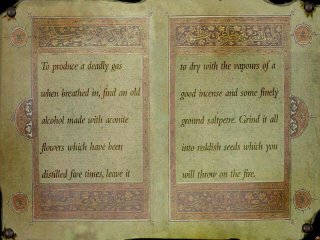 To produce a deadly gas
when breathed in, find an old
alcohol made with aconite
flowers which have been
distilled five times, leave it
to dry with the vapours of a
good incense and some finely
ground saltpetre. Grind it all
into reddish seeds which you
will throw on the fire.